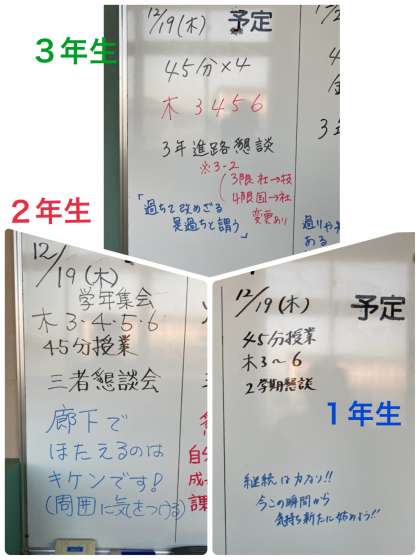 3年生
12/19(木) 予定
45分×4
木 3456
3年進路懇談
※3-2
3限 社→技
4限 国→社
変更あり
「過ちて改めざる
是過ちと謂う」
過りや
ある
2年生
12/19(木)
学年集会
木 3・4・5・6
45分授業
三者懇談会
廊下で
ほたえるのは
キケンです!
(周囲に気をつける)
1年生
12/19(木) 予定
45分授業
木3～6
2学期懇談
継続は力なり!!
今この瞬間から
気持ち新たに始めよう!!